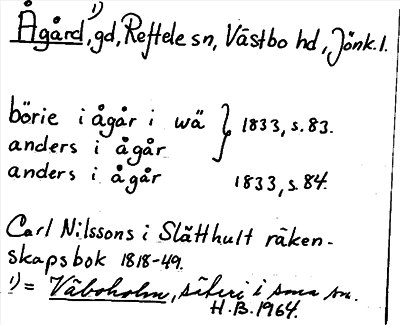 Ågård,¹⁾ gd, Reftele sn, Västbo hd, Jönk. l.
börie i ågår i wä } 1833, s. 83.
anders i ågår
anders i ågår 1833, s. 84.
Carl Nilssons i Slätthult räken-
skapsbok 1818-49.
¹⁾ = Väboholm, säteri i sma sn.
H.B. 1964.